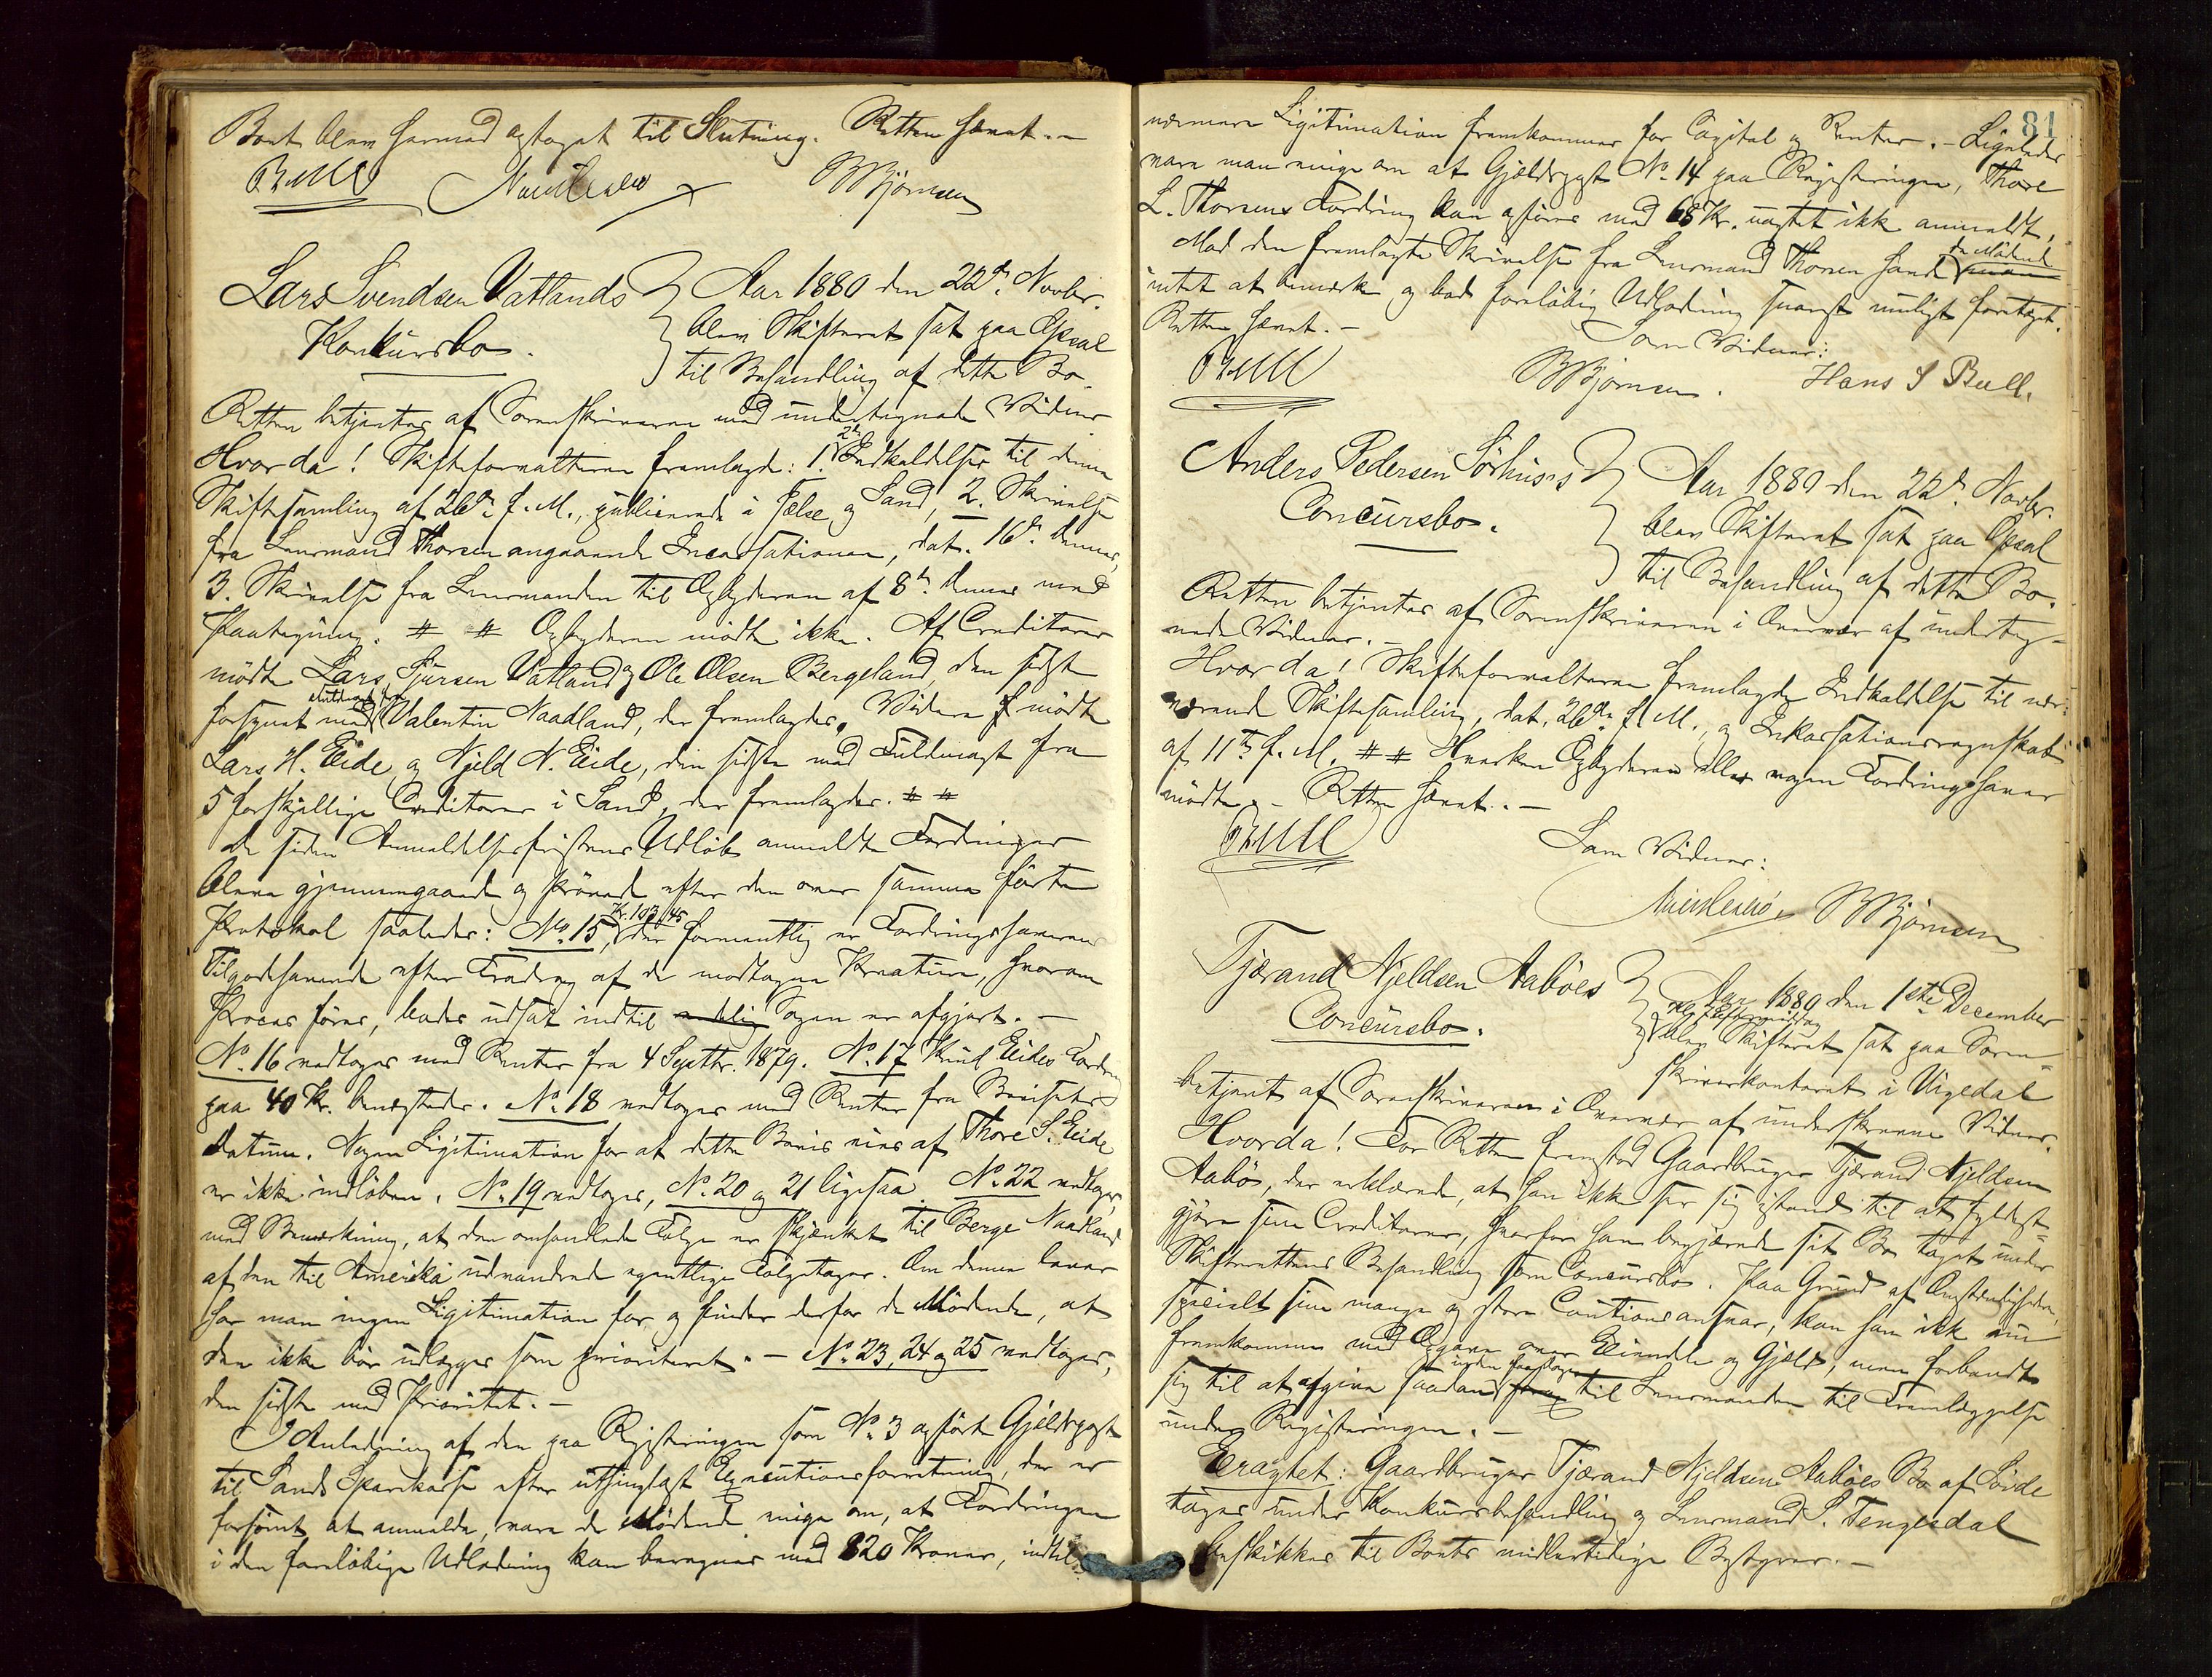 Boet blev hermed optaget til Slutning. Retten hævet. -
Bull BBjørnsen
Lars Svendsen Vatlands
Konkursbo.
Aar 1880 den 22de Novbr.
blev Skifteret sat paa Opsal
til Behandling af dette Bo.
Retten betjentes af Sorenskriveren med undertegnede Vidner
Hvorda! Skifteforvalteren fremlagde: 1. 2de Indkaldelser til denne
Skiftesamling af 26de f. M., publicerede i Jelse og Sand, 2. Skrivelse
fra Lensmand Thorsen angaaende Incassationen, dat. 16de dennes,
3. Skrivelse fra Lensmanden til Opbyderen af 8de dennes med
Paategning. # # Opbyderen mødte ikke. Af Creditorer
mødte Lars Sjursen Vatland og Ole Olsen Bergeland, den sidste
forsynet med Fuldmagt fra Valentin Naadland, der fremlagdes. Videre mødte
Lars H. Eide og Njeld N. Eide, den sidste med Fuldmagt fra
5 forskjellige Creditorer i Sand, der fremlagdes. # #
De siden Anmeldelsesfristens Udløb anmeldte Fordringer
bleve gjennemgaaede og prøvede efter den over samme førte
Protokol saaledes: No. 15, Kr. 103,45 der formentlig er Fordringshaverens
Tilgodehavende efter Fradrag af de modtagne Kreature, hvorom
Proces føres, bedes udsat indtil endelig Sagen er afgjort. -
No. 16 vedtoges med Renter fra 4 Septbr. 1879. No. 17 Knud Eides Fordring
paa 40 Kr. benegtedes. No. 18 vedtoges med Renter fra Bevisets
datum. Nogen Ligitimation for at dette Bevis eies af Thore S. Eide
er ikke indløben. No. 19 vedtoges, No. 20 og 21 ligesaa. No. 22 vedtoges,
med Bemærkning, at den omhandlede Følge er skjænket til Berge Naadland
af den til Amerika udvandrede egentlige Følgetager. Om denne lever
har man ingen Ligitimation for og finder derfor de Mødende, at
den ikke bør udlægges som prioriteret. - No. 23, 24 og 25 vedtoges,
den sidste med Prioritet. -
I Anledning af den paa Registeringen som No. 3 opførte Gjeldspost
til Sands Sparekasse efter uthinglæst Executionsforretning, der er
forsømt at anmelde, vare de Mødende enige om, at Fordringen
i den foreløbige Udlodning kan beregnes med 820 Kroner, indtil
81
nærmere Ligitimation fremkommer for Capital og Renter. - Ligeledes
vare man enige om at Gjældspost No. 14 paa Registeringen, Thore
L. Thorsens Fordring kan opføres med 68 Kr. uagtet ikke anmeldt.
Mod den fremlagte Skrivelse fra Lensmand Thorsen havde de Mødende
intet at bemærke og bad foreløbig Udlodning snarest muligt foretaget.
Retten hævet. -
Som Vidner:
Bull BBjørnsen. Hans S Bull.
Anders Pedersen Sørhus's
Concursbo.
Aar 1880 den 22de Novbr.
blev Skifteret sat paa Opsal
til Behandling af dette Bo.
Retten betjentes af Sorenskriveren i Overvær af underteg-
nede Vidner. -
Hvorda! Skifteforvalteren fremlagde Indkaldelse til nær-
værende Skiftesamling, dat. 26de f. M., og Inkassationsregnskab
af 11te f. M. # # Hverken Opbyderen eller nogen Fordringshaver
mødte. - Retten hævet. -
Bull
Som Vidner:
BBjørnsen
Tjærand Njeldsen Aabøes
Concursbo.
Aar 1880 den 1ste December
Kl. 7 Eftermiddag
blev Skifteret sat paa Soren-
skriverkontoret i Vigedal
betjent af Sorenskriveren i Overvær af underskrevne Vidner.
Hvorda! For Retten fremstod Gaardbruger Tjærand Njeldsen
Aabø, der erklærede, at han ikke ser sig istand til at fyldest-
gjøre sine Creditorer, hvorfor han begjærede sit Bo taget under
Skifterettens Behandling som Concursbo. Paa Grund af Omstændigheder,
specielt sine mange og store Cautionsansvar, kan han ikke nu
fremkomme med Opgave over Eiendele og Gjeld, men forbandt
sig til at afgive saadan inden faa dage til Lensmanden til Fremlæggelse
under Registeringen. -
Eragtet: Gaardbruger Tjærand Njeldsen Aabøes Bo af Søvde
tages under Konkursbehandling og Lensmand S. Tengesdal
beskikkes til Boets midlertidige Bestyrer. -